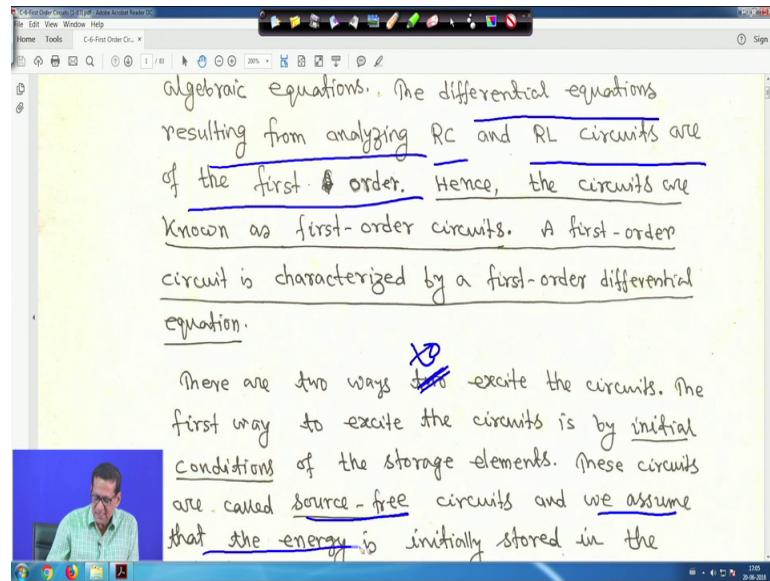 C-6-First Order Circuits [1-83].pdf - Adobe Acrobat Reader DC
File Edit View Window Help
Home Tools C-6-First Order Cir... × Sign
1 / 83 200%
algebraic equations. The differential equations
resulting from analyzing RC and RL circuits are
of the first order. Hence, the circuits are
known as first-order circuits. A first-order
circuit is characterized by a first-order differential
equation.
to
There are two ways two excite the circuits. The
first way to excite the circuits is by initial
conditions of the storage elements. These circuits
are called source-free circuits and we assume
that the energy is initially stored in the
17:05
20-06-2019